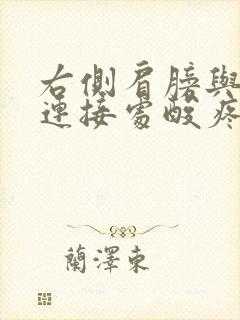 右側肩膀與
連接處酸疼
蘭澤東